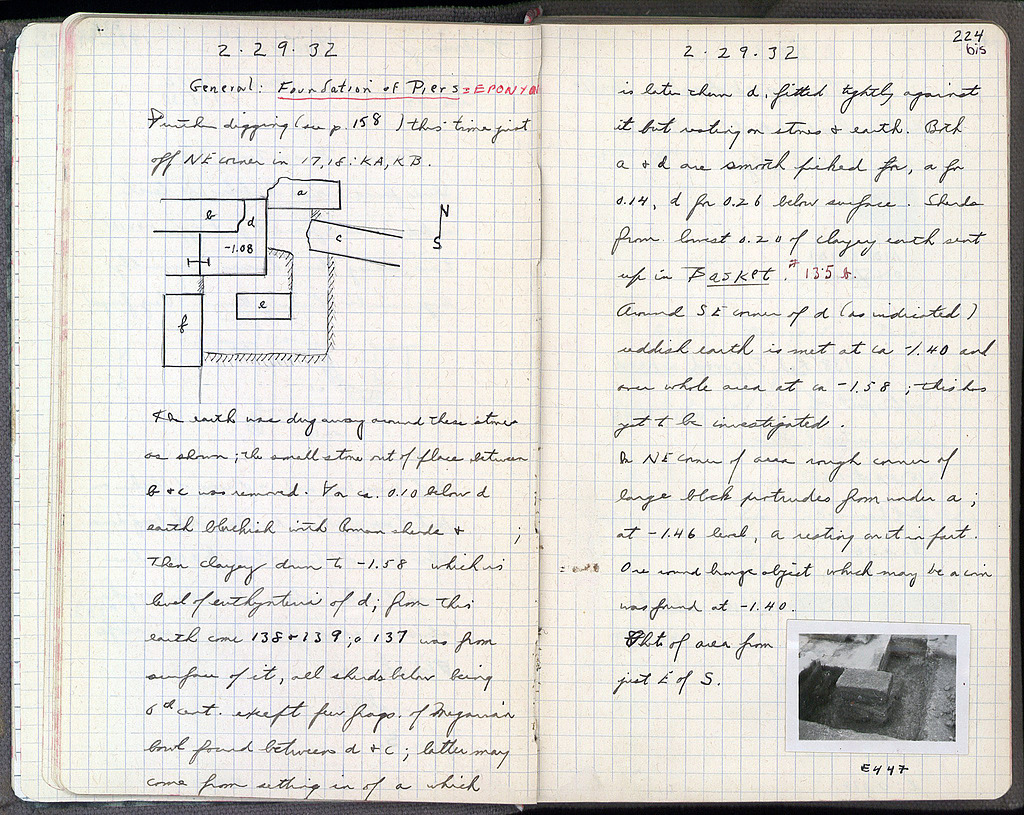 2 · 29 · 32
General: Foundation of Piers = EPONYM
Further digging (see p. 158 ) this time just
off NE corner in 17,18 : KA, KB.
a
b
d
c
N
S
-1.08
e
f
earth was dug away around these stones
as shown; the small stone out of place between
b & c was removed. For ca. 0.10 below d
earth blackish with Roman sherds & ;
Then clayey down to -1.58 which is
level of euthynteria of d; from this
earth come 138 & 139; 137 was from
surface of it, all sherds below being
cent. except few frags. of Megarian
bowl found between d & c; latter may
come from setting in of a which
224
bis
2 · 29 · 32
is later than d, fitted tightly against
it but resting on stones & earth. Both
a & d are smooth picked for, a for
0.14, d for 0.26 below surface. Sherds
from lowest 0.20 of clayey earth sent
up in Basket. # 135 b.
Around SE corner of d (as indicated)
reddish earth is met at ca -1.40 and
over whole area at ca -1.58 ; this has
yet to be investigated.
In NE corner of area rough corner of
large block protrudes from under a ;
at -1.46 level, a resting on it in part.
One round bronze object which may be a coin
was found at -1.40.
Photo of area from
just E of S.
E447